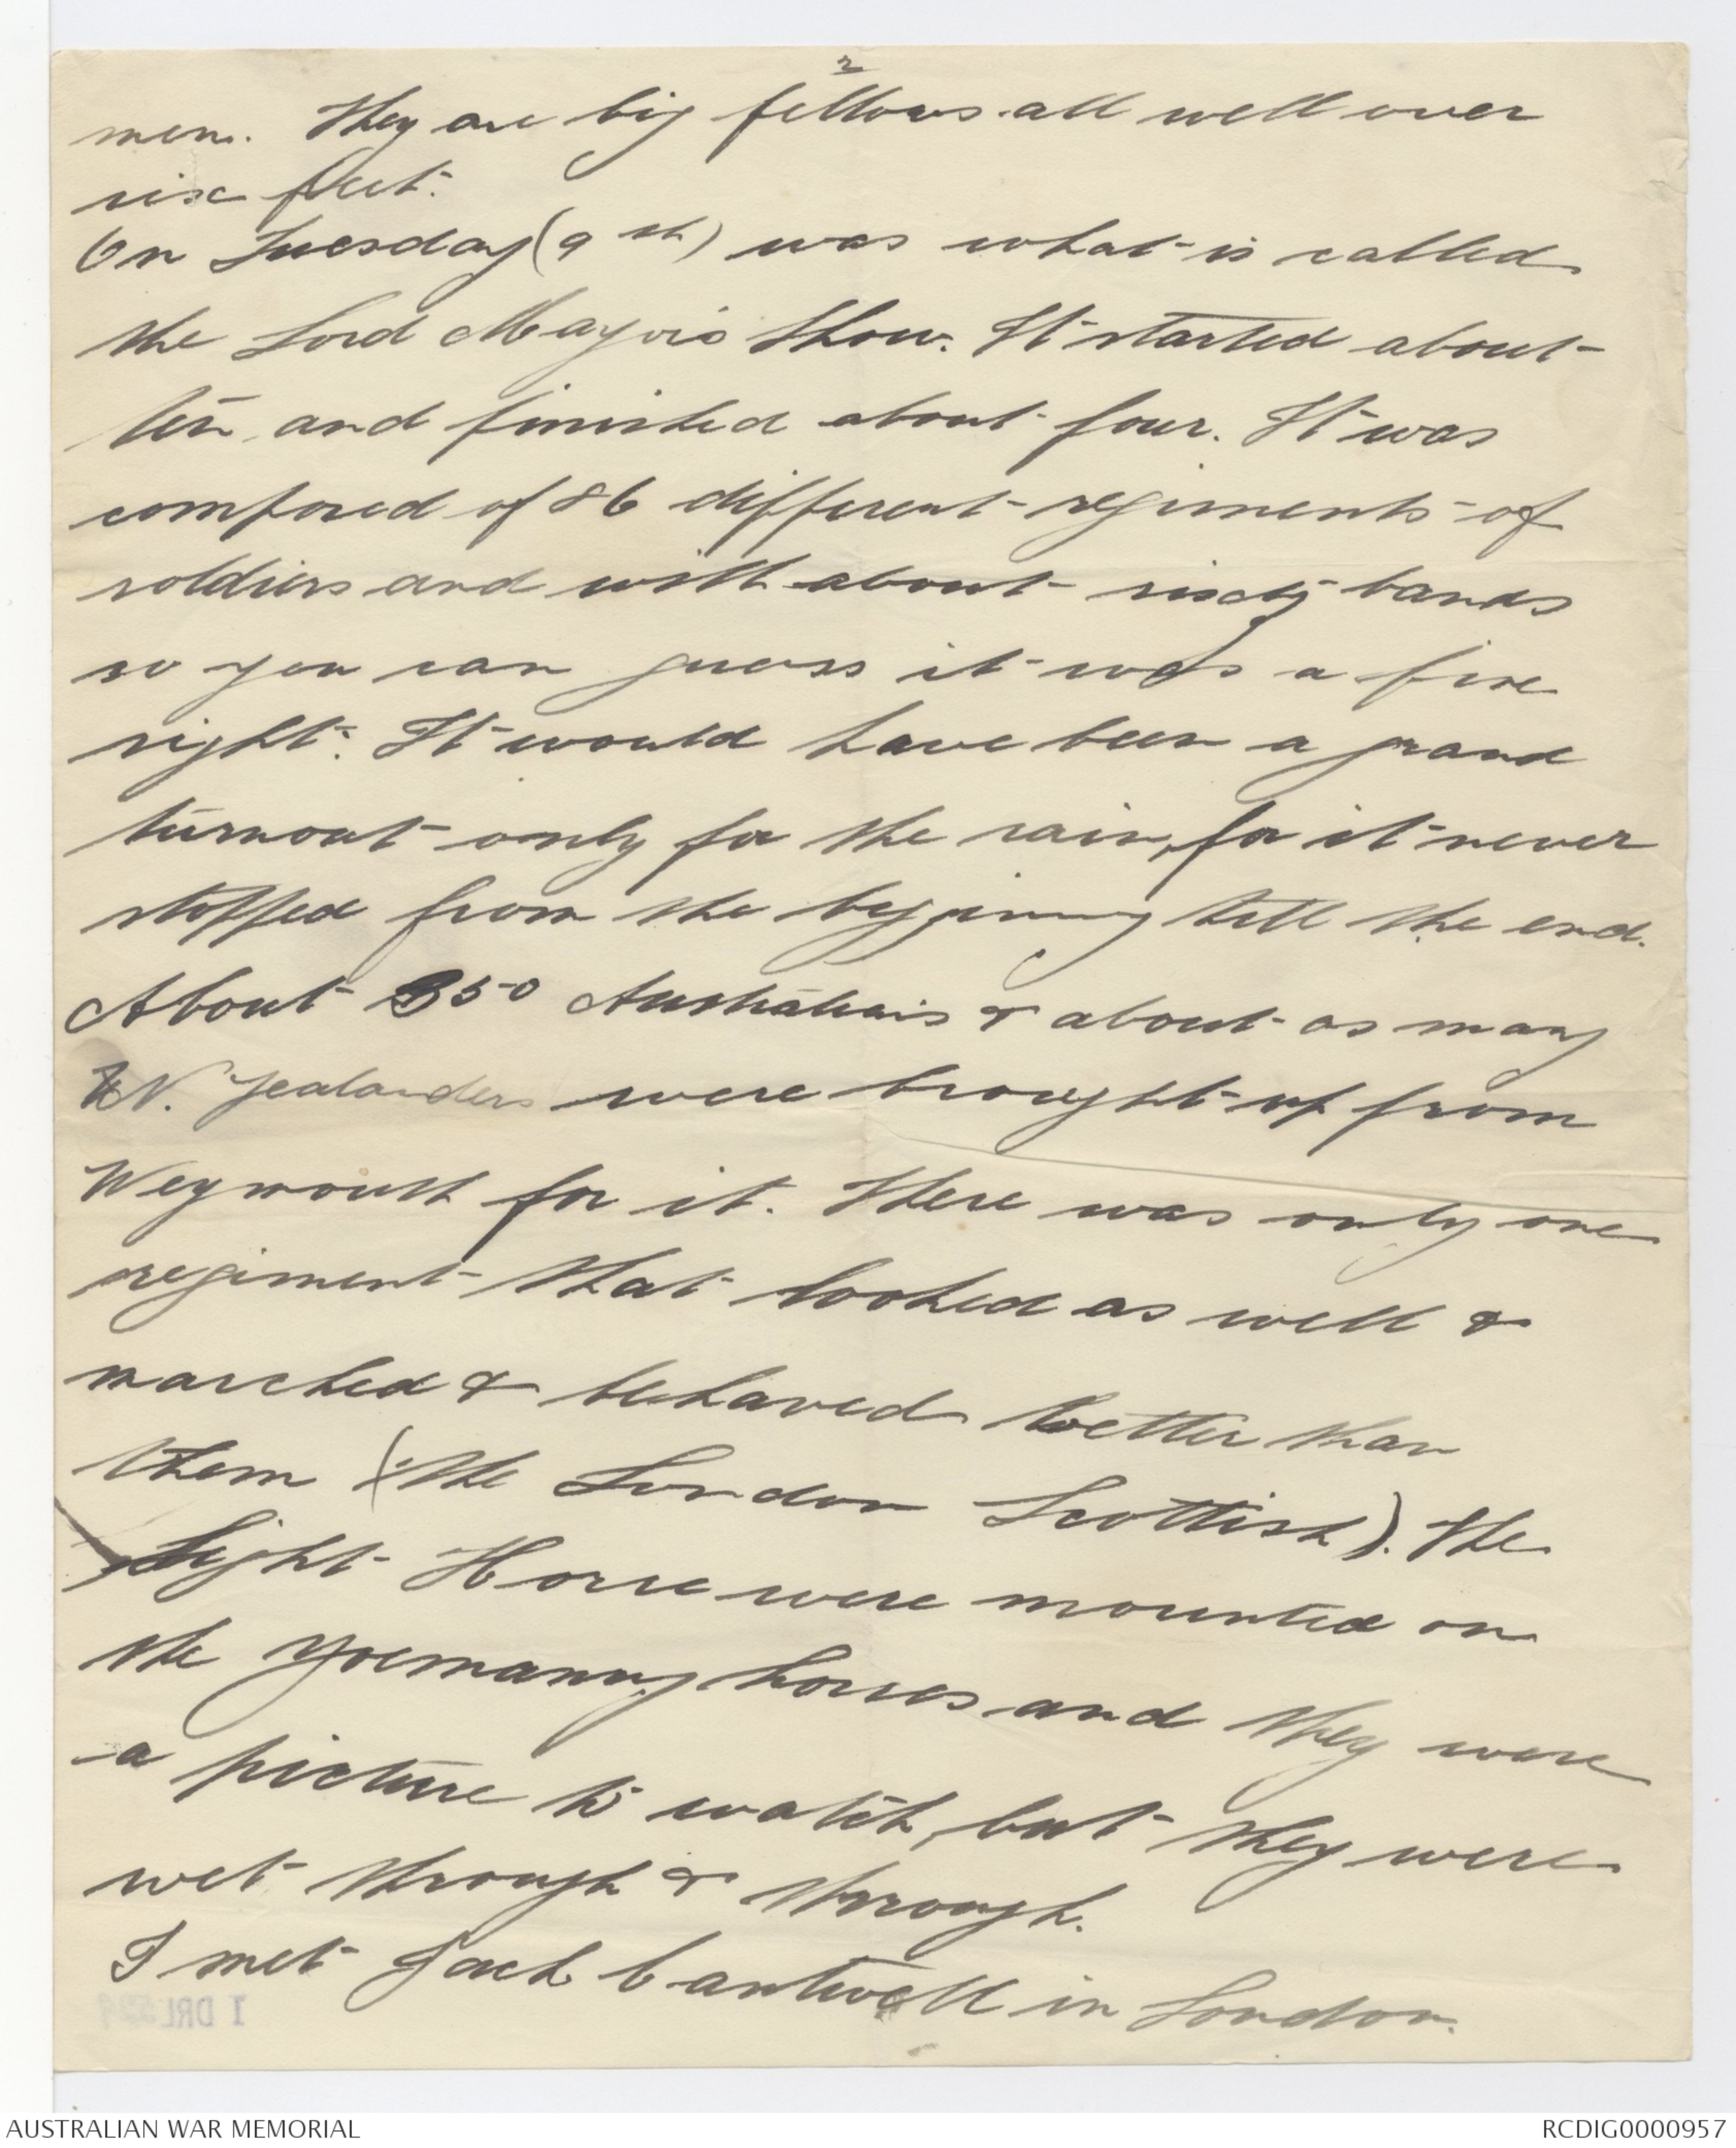 2
men. They are big fellows all well over
six feet.
On Tuesday (9th) was what is called
the Lord Mayors Show. It started about
ten and finished about four. It was
composed of 86 different regiments of
soldiers and with about sixty bands
so you can guess it was a fine
sight. It would have been a grand
turnout only for the rain, for it never
stopped from the beginning till the end.
About 350 Australians & about as many
N. Zealanders were brought up from
Weymouth for it. There was only one
regiment that looked as well &
marched & behaved better than
them (the London Scottish). The
Light Horse were mounted on
the Yoemanny horses and they were
a picture to watch, but they were
wet through & through.
I met Jack Cantwell in London.
AUSTRALIAN WAR MEMORIAL
RCDIG0000957